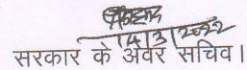 14/3/2022
सरकार के अवर सचिव।